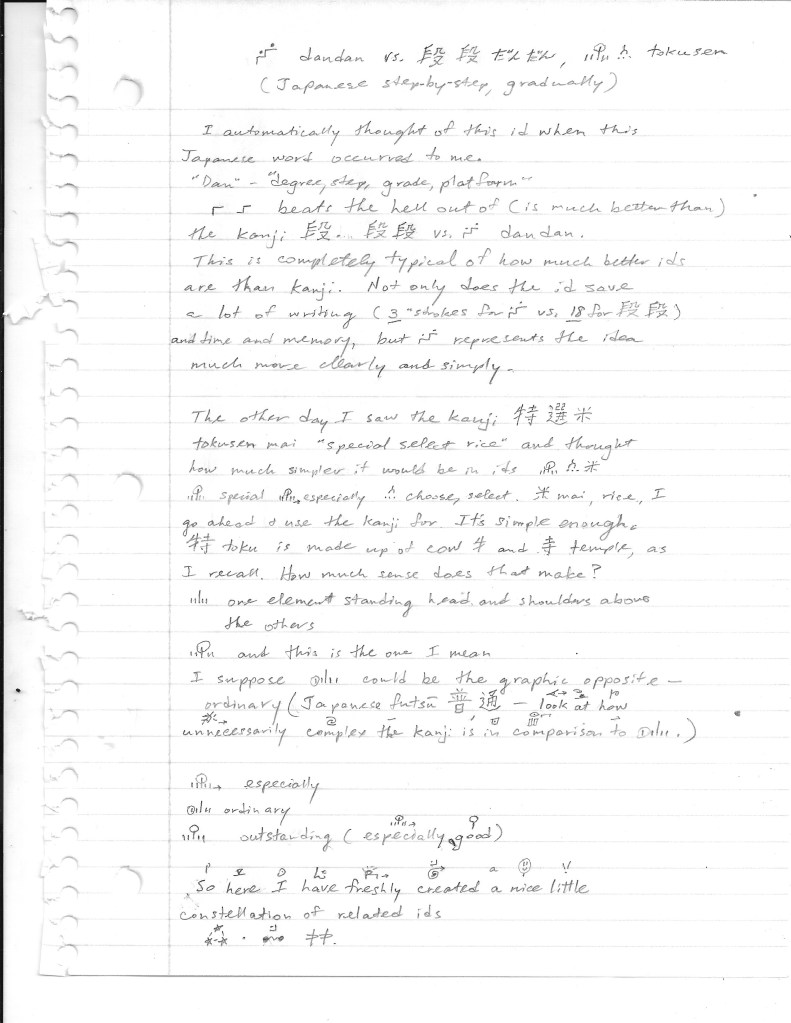 dandan vs. 段段 だんだん, tokusen
(Japanese step-by-step, gradually)
I automatically thought of this id when this
Japanese word occurred to me.
"Dan" - "degree, step, grade, platform"
beats the hell out of (is much better than)
the kanji 段... 段段 vs. dandan.
This is completely typical of how much better ids
are than kanji. Not only does the id save
a lot of writing (3 "strokes for vs. 18 for 段段)
and time and memory, but represents the idea
much more clearly and simply.
The other day I saw the kanji 特選米
tokusen mai "special select rice" and thought
how much simpler it would be in ids 米
special especially choose, select. 米 mai, rice, I
go ahead & use the kanji for. It's simple enough.
特 toku is made up of cow 牛 and 寺 temple, as
I recall. How much sense does that make?
one element standing head and shoulders above
the others
and this is the one I mean
I suppose could be the graphic opposite -
ordinary (Japanese futsū 普通 - look at how
unnecessarily complex the kanji is in comparison to .)
especially
ordinary
outstanding (especially good)
So here I have freshly created a nice little
constellation of related ids